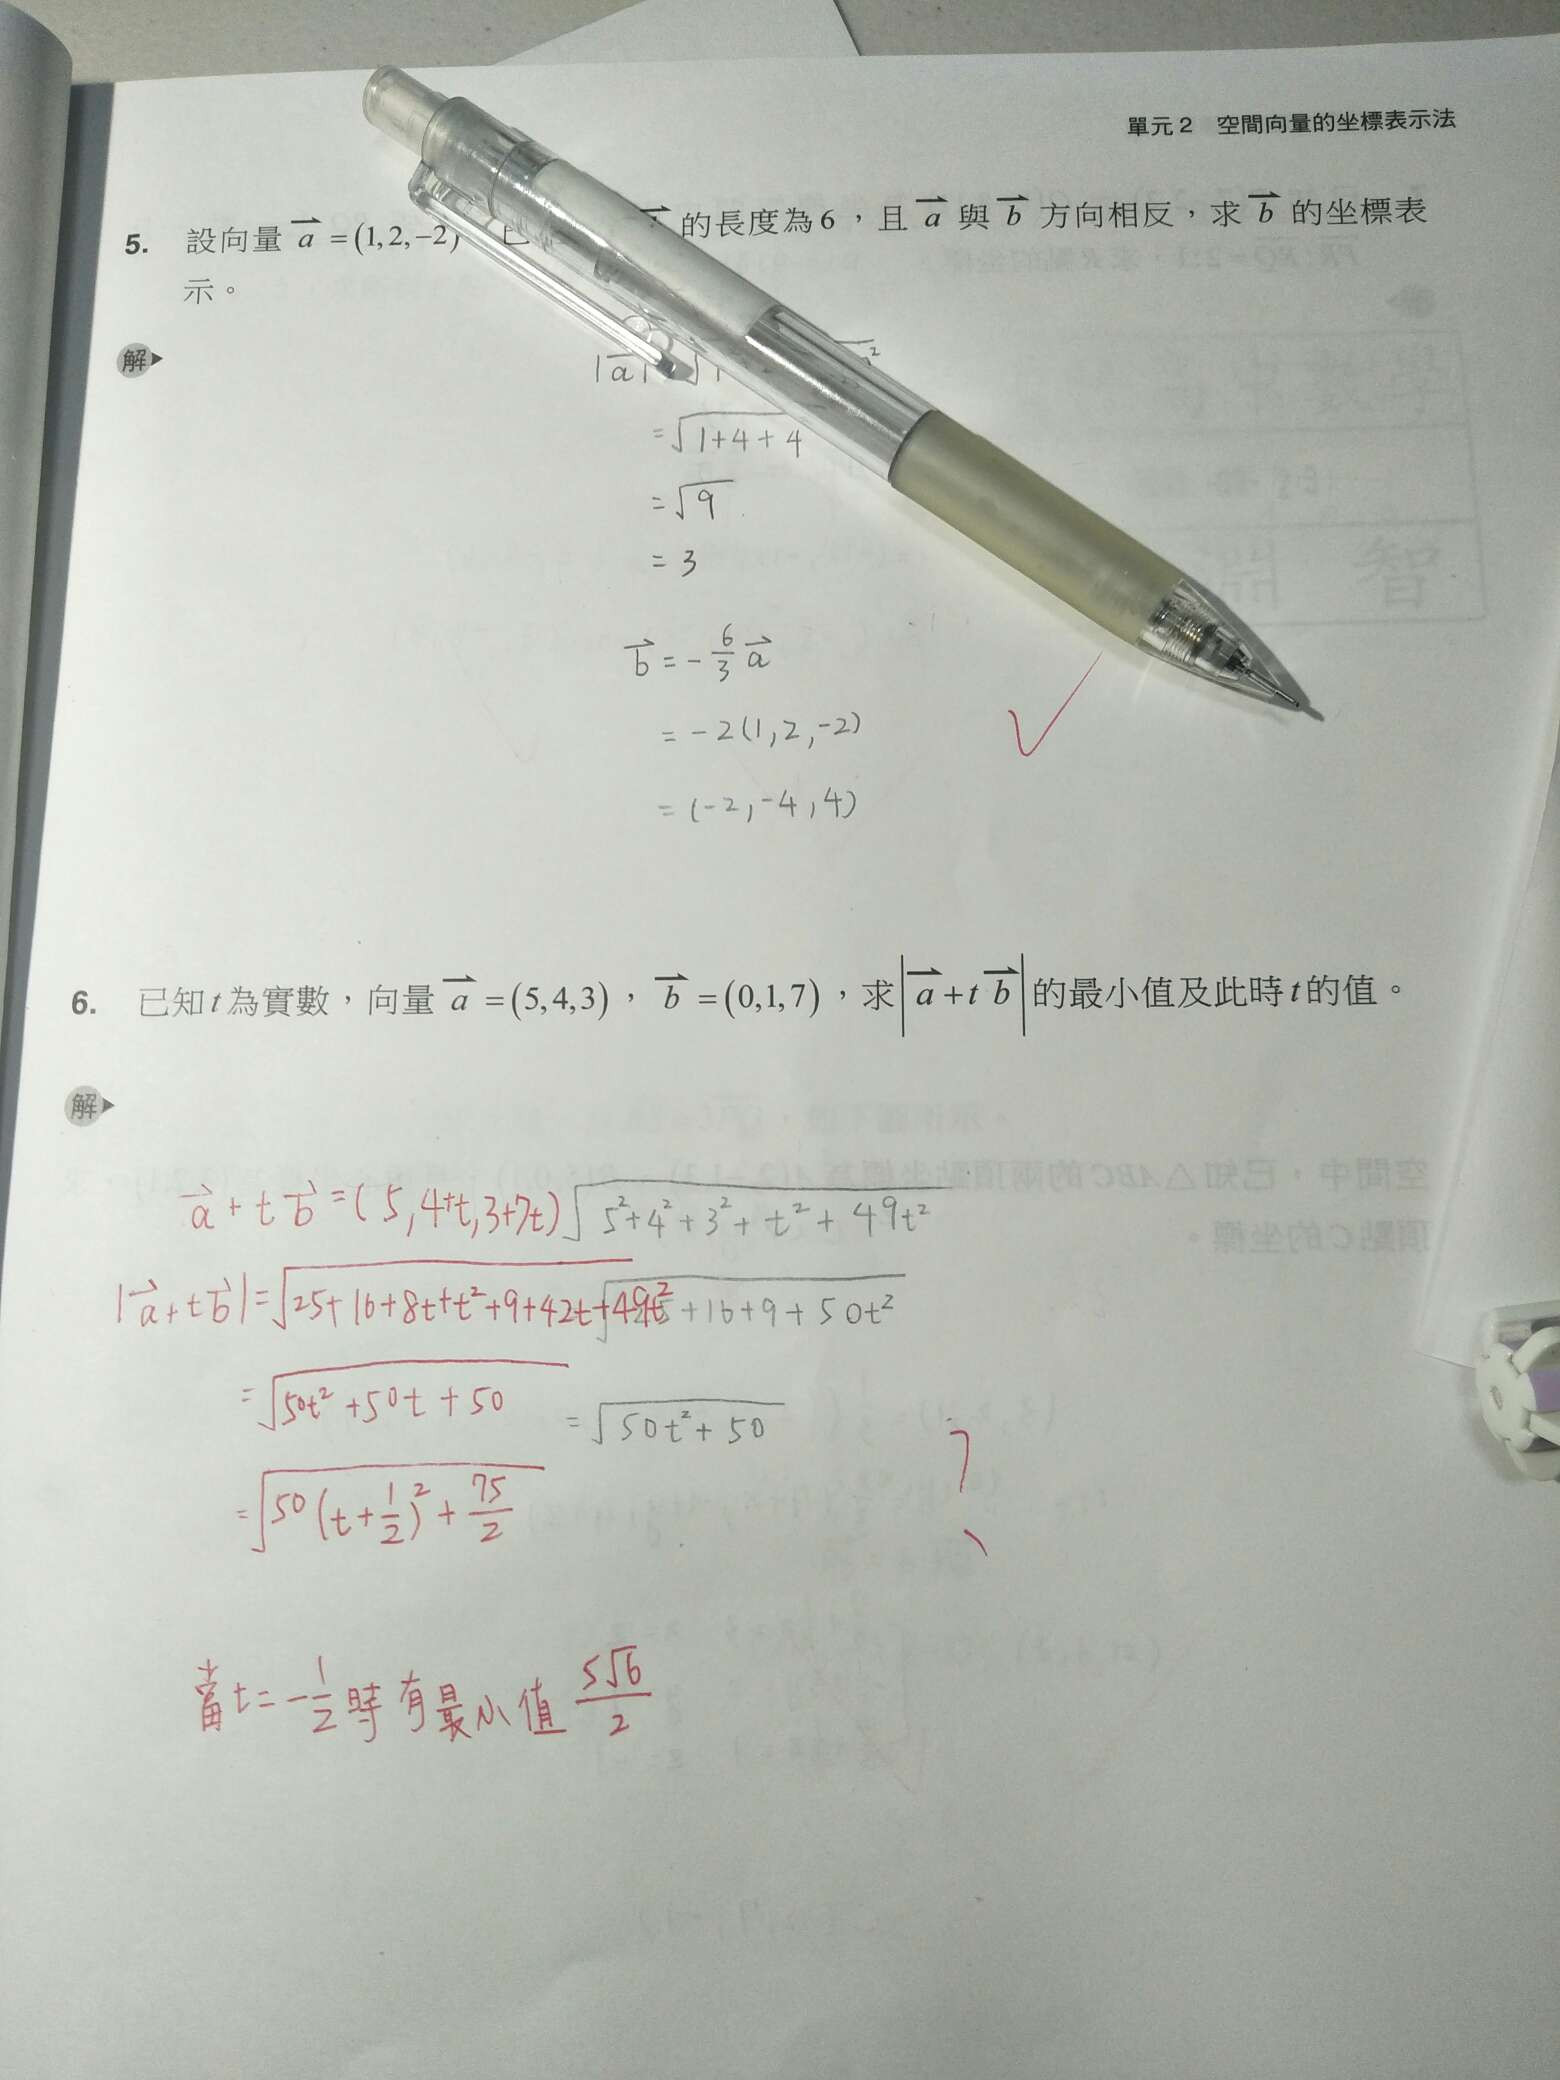 單元2 空間向量的坐標表示法
5. 設向量 a⃗ = (1, 2, −2) 的長度為6,且 a⃗ 與 b⃗ 方向相反,求 b⃗ 的坐標表
示。
解
|a⃗|
=√(1+4+4)
=√9
=3
b⃗ = −6/3 a⃗
= −2(1,2,−2)
= (−2,−4,4)
6. 已知t為實數,向量 a⃗ = (5, 4, 3), b⃗ = (0, 1, 7),求|a⃗ + t b⃗|的最小值及此時t的值。
解
a⃗ + t b⃗ = (5, 4+t, 3+7t) √(5²+4²+3²+t²+49t²)
|a⃗+t b⃗| = √(25+16+8t+t²+9+42t+49t²) +16+9+50t²
=√(50t²+50t+50) =√(50t²+50)
=√(50(t+1/2)²+75/2)
當t=−1/2時有最小值 5√6/2